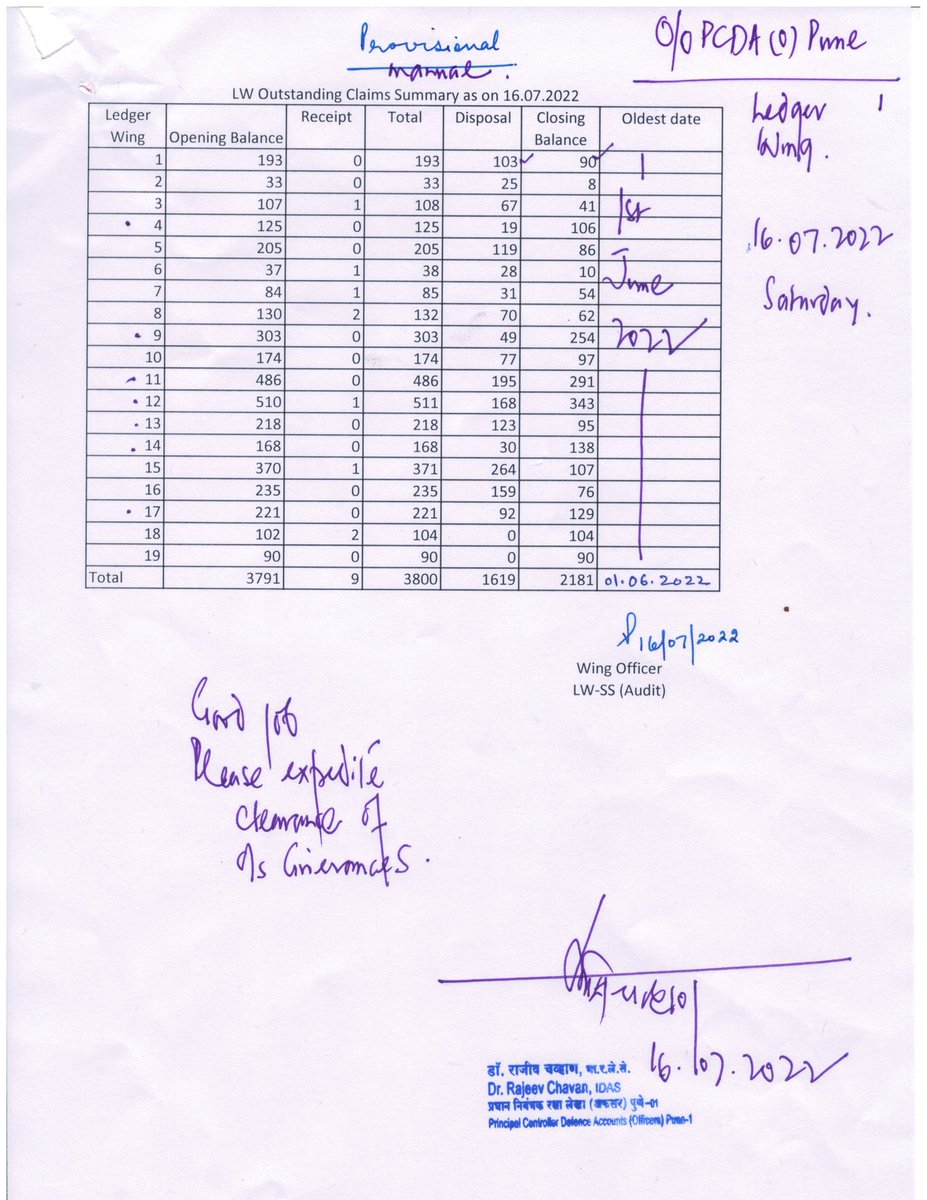 Provisional
manual.
O/o PCDA (O) Pune
Ledger
Wing.
16.07.2022
Saturday.
LW Outstanding Claims Summary as on 16.07.2022
Ledger Wing Opening Balance Receipt Total Disposal Closing Balance Oldest date
1 193 0 193 103 90
2 33 0 33 25 8
3 107 1 108 67 41
4 125 0 125 19 106
5 205 0 205 119 86
6 37 1 38 28 10
7 84 1 85 31 54
8 130 2 132 70 62
9 303 0 303 49 254
10 174 0 174 77 97
11 486 0 486 195 291
12 510 1 511 168 343
13 218 0 218 123 95
14 168 0 168 30 138
15 370 1 371 264 107
16 235 0 235 159 76
17 221 0 221 92 129
18 102 2 104 0 104
19 90 0 90 0 90
1st
June
2022
Total 3791 9 3800 1619 2181 01.06.2022
16/07/2022
Wing Officer
LW-SS (Audit)
Good job
Please expedite
clearance of
O/s Grievances.
16.07.2022
डॉ. राजीव चव्हाण, भा.र.ले.से.
Dr. Rajeev Chavan, IDAS
प्रधान नियंत्रक रक्षा लेखा (अफसर) पुणे-01
Principal Controller Defence Accounts (Officers) Pune-1